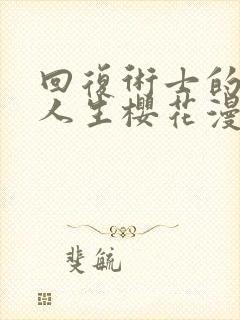 回復術士的
人生櫻花漫
斐毓